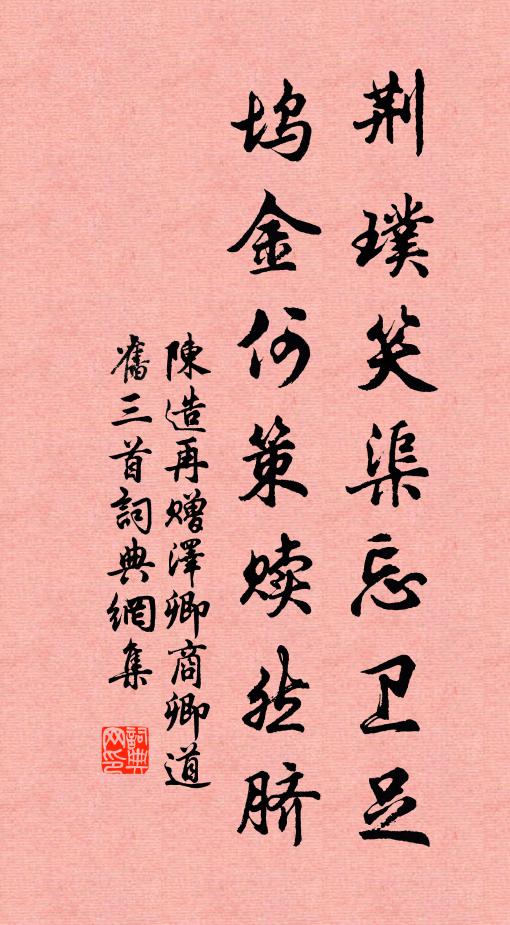 荆璞笑渠忘卫足
坞金何策赎然脐
陳造再赠澤卿商卿道
舊三首詞典網集
詞典网印